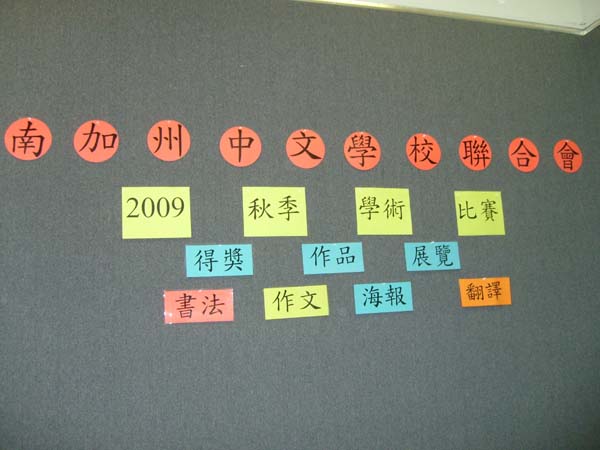 南加州中文學校聯合會
2009 秋季 學術 比賽
得獎 作品 展覽
書法 作文 海報 翻譯